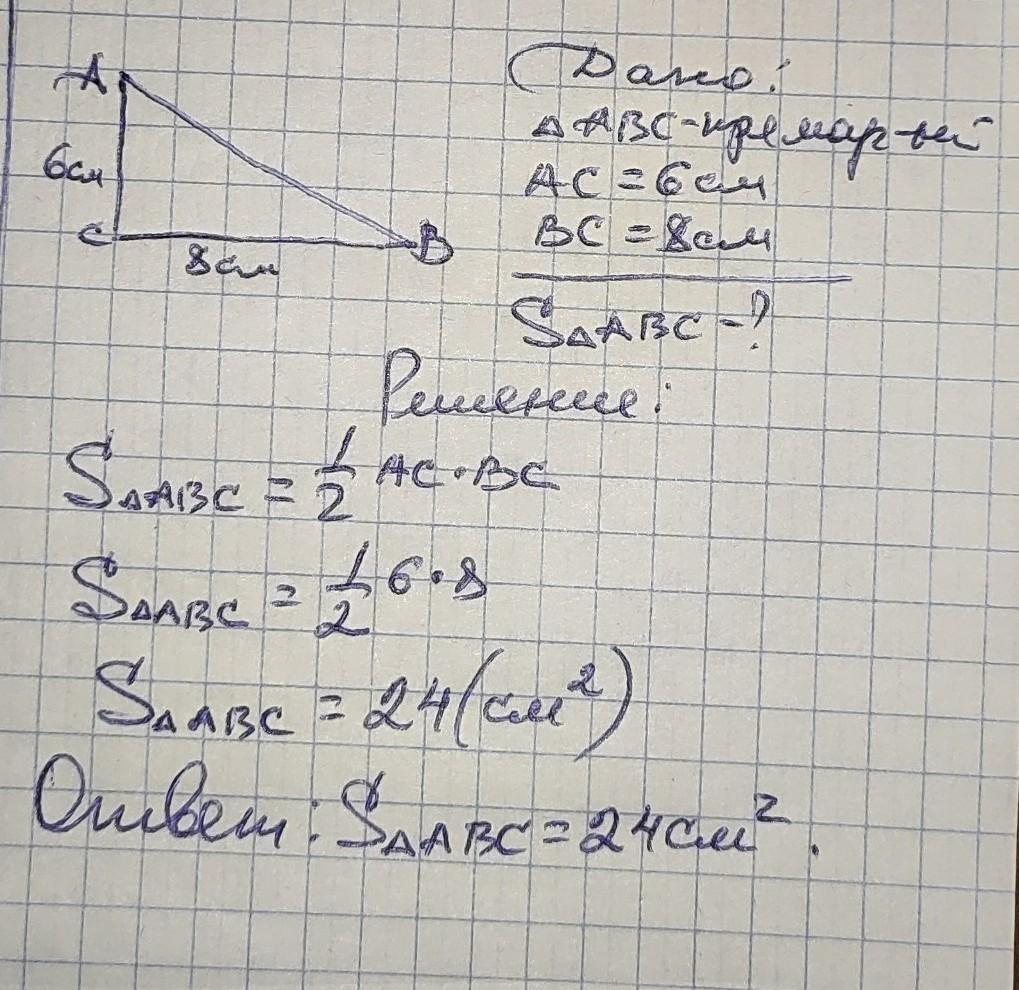 A
6см
C
8см
B
Дано:
△ABC-прямоуг-ый
AC = 6 см
BC = 8см
S△ABC -?
Решение:
S△ABC = 1/2 AC·BC
S△ABC = 1/2 6·8
S△ABC = 24(см²)
Ответ: S△ABC = 24см².